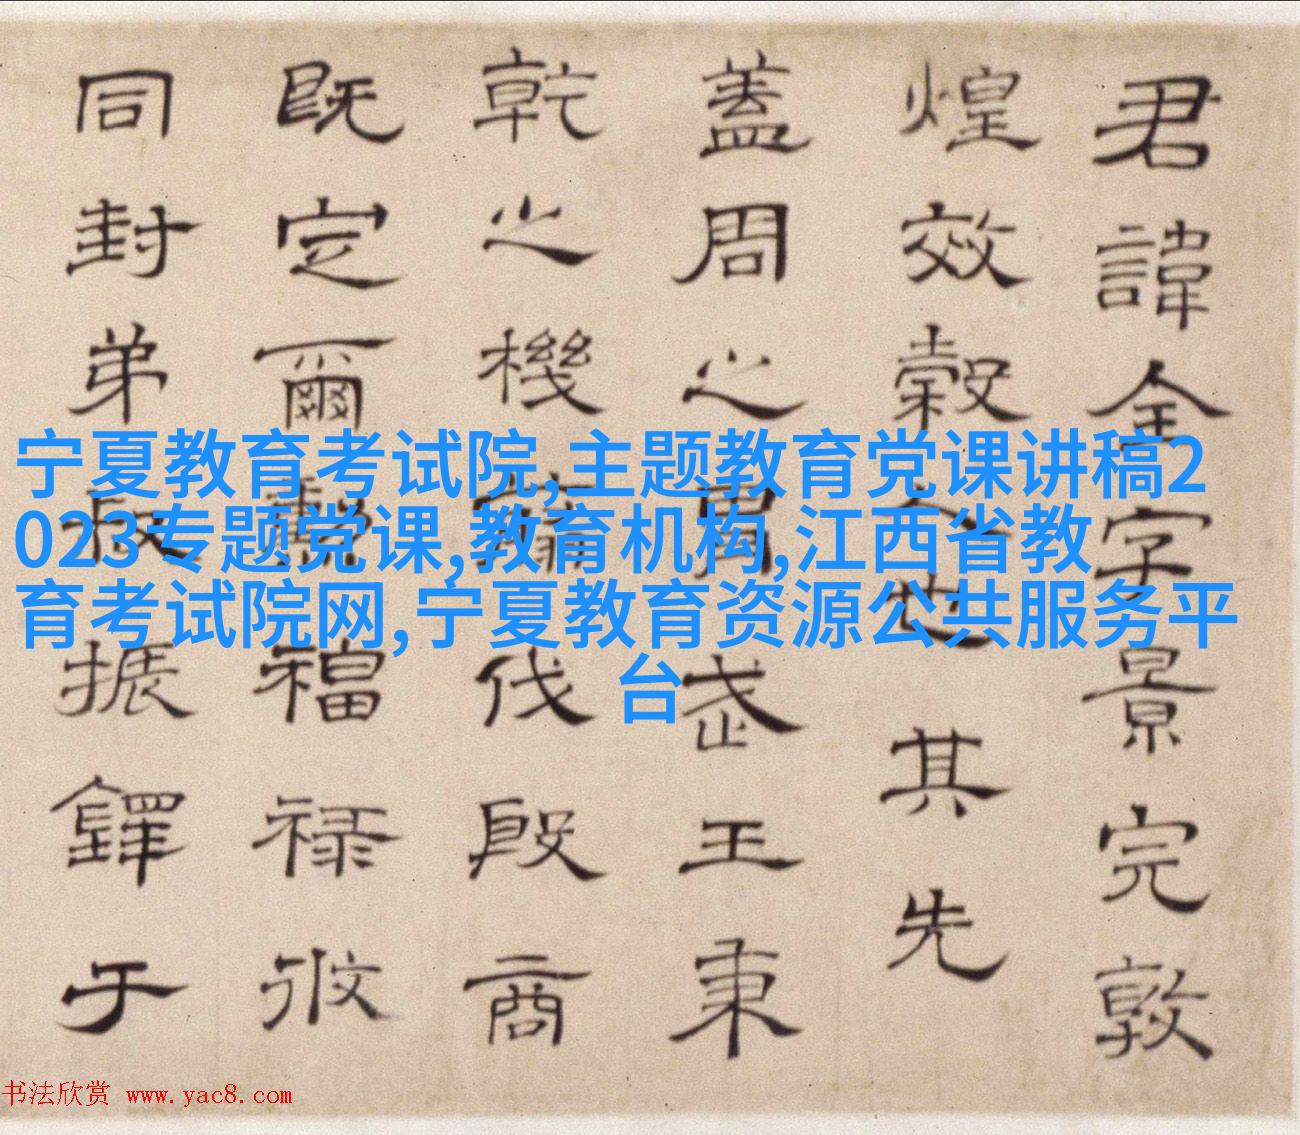 君諱全字景完敦
煌效穀人也其先
蓋周之胄武王秉
乾之機翦伐殷商
既定爾勳福祿攸
同封弟叔振鐸于
宁夏教育考试院,主题教育党课讲稿2
023专题党课,教育机构,江西省教
育考试院网,宁夏教育资源公共服务平
台
书法欣赏 www.yac8.com